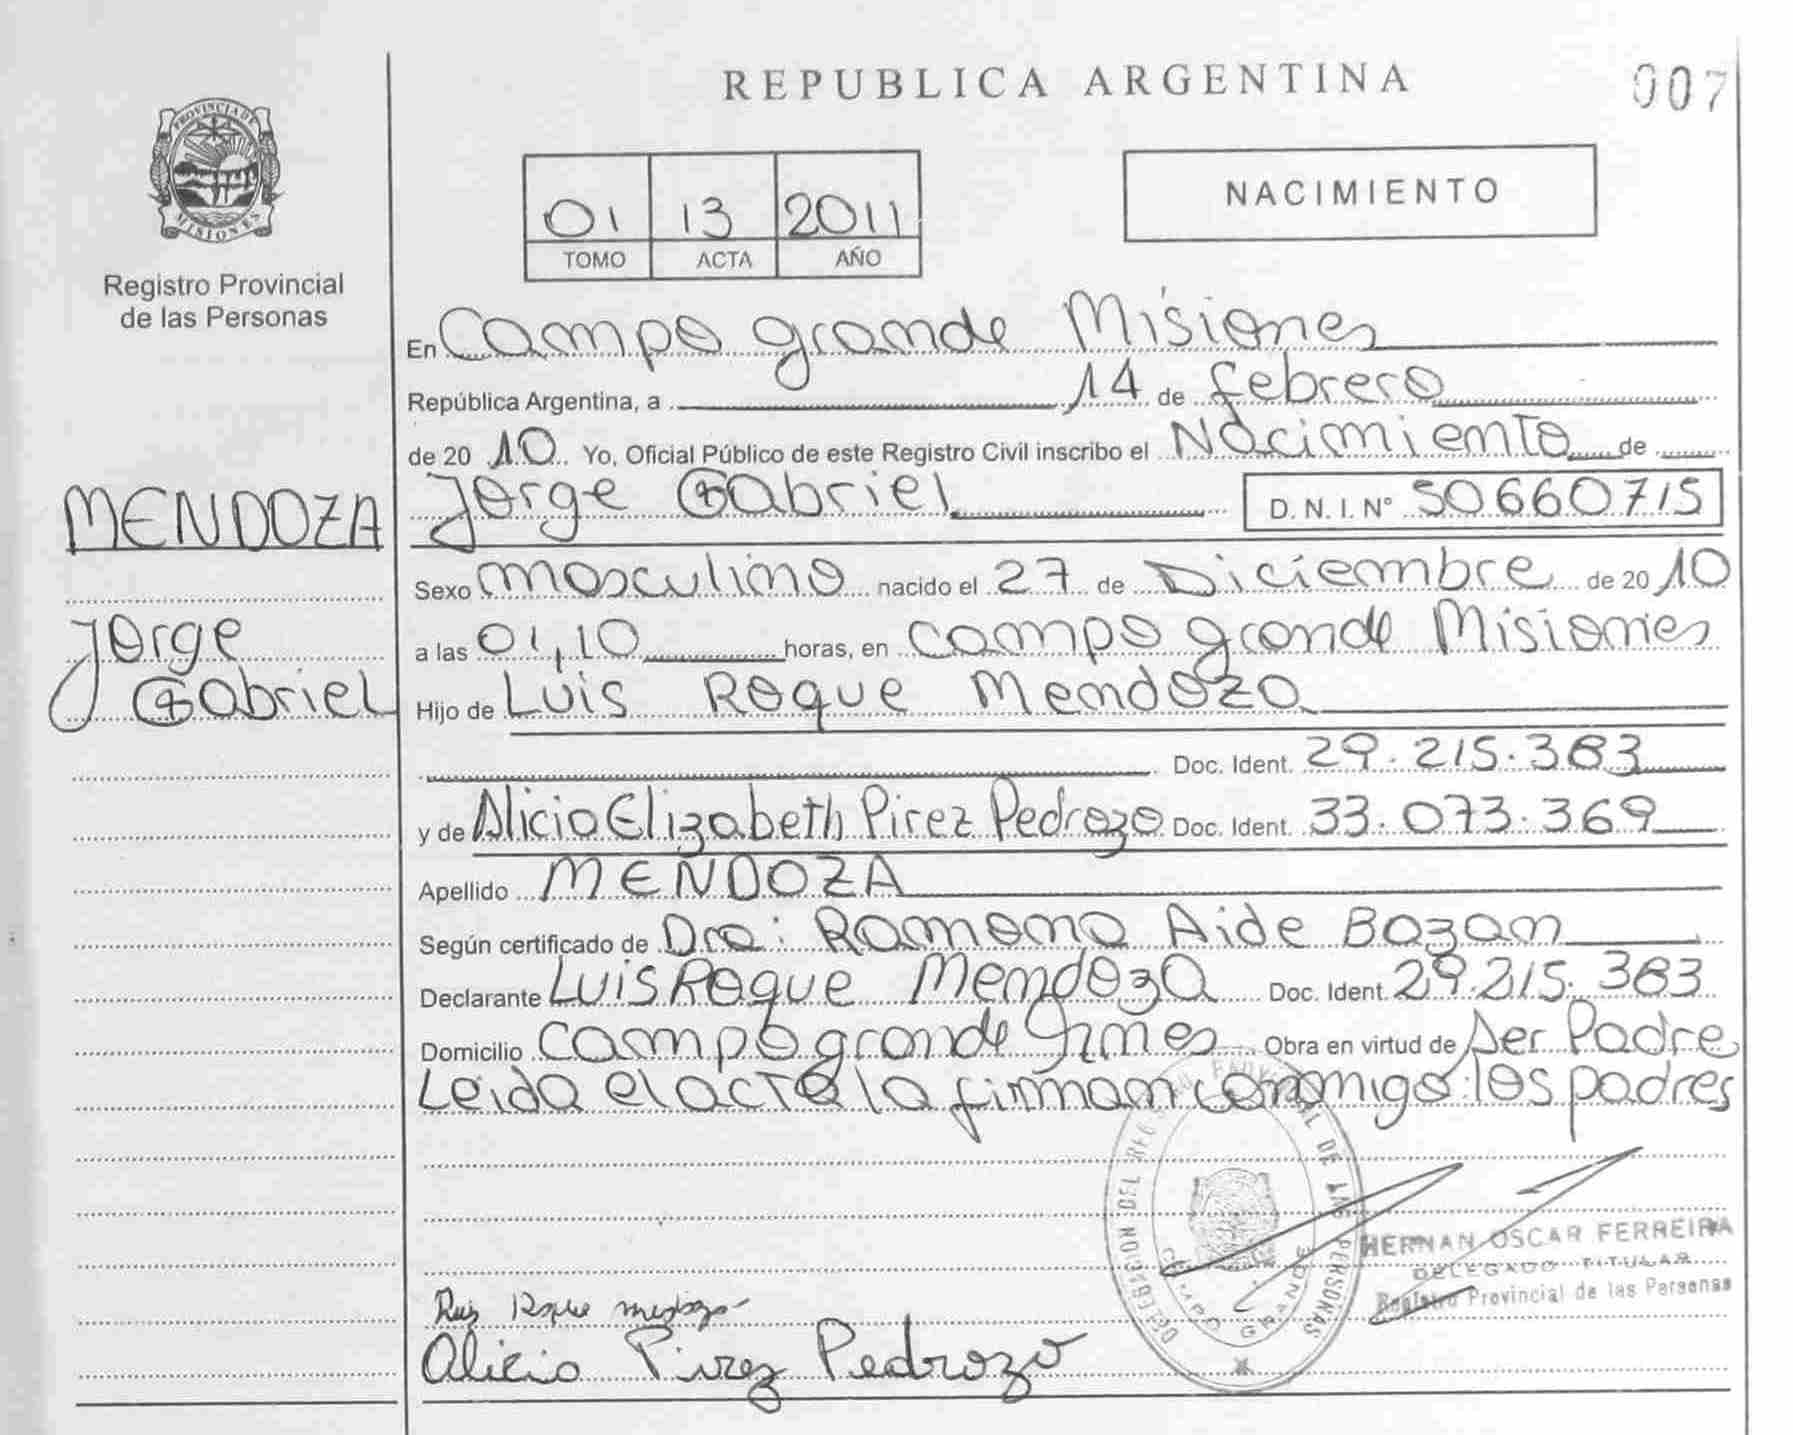 REPUBLICA ARGENTINA
007
PROVINCIA DE
MISIONES
Registro Provincial
de las Personas
01 13 2011
TOMO ACTA AÑO
NACIMIENTO
En Campo grande Misiones
República Argentina, a 14 de febrero
de 20 10 Yo, Oficial Público de este Registro Civil inscribo el Nacimiento de
MENDOZA
Jorge Gabriel D. N. I. Nº 50660715
Sexo masculino nacido el 27 de Diciembre de 20 10
Jorge
a las 01,10 horas, en campo grande Misiones
Gabriel
Hijo de Luis Roque Mendoza
Doc. Ident. 29.215.383
y de Alicia Elizabeth Pirez Pedrozo Doc. Ident. 33.073.369
Apellido MENDOZA
Según certificado de Dra: Ramona Aide Bozan
Declarante Luis Roque Mendoza Doc. Ident. 29.215.383
Domicilio campo grande Obra en virtud de ser Padre
Leida el acta la firman conmigo los padres
DELEGACION DEL REG. PROVINCIAL DE LAS PERSONAS
CAMPO GRANDE
HERNAN OSCAR FERREIRA
DELEGADO TITULAR
Registro Provincial de las Personas
Luis Roque mendoza
Alicia Pirez Pedrozo